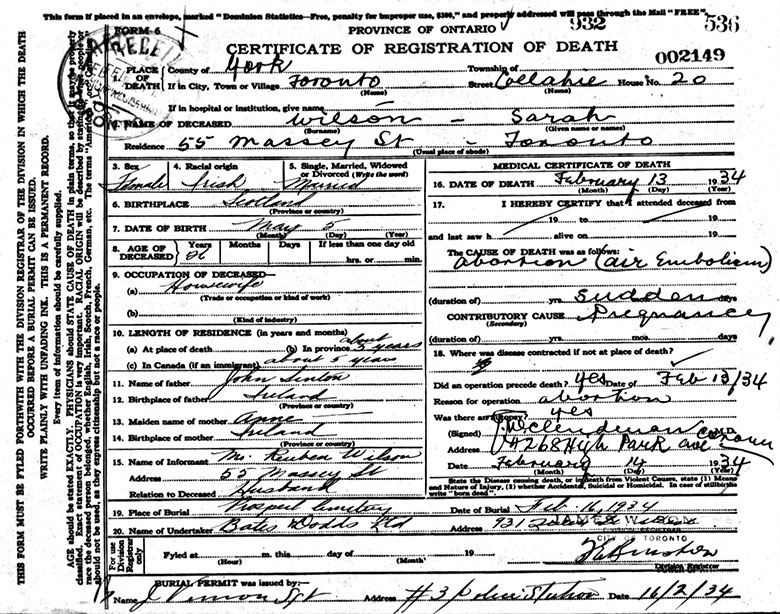 This form if placed in an envelope, marked "Dominion Statistics—Free, penalty for improper use, $300," and properly addressed will pass through the Mail "FREE".
932 536
FORM 6 PROVINCE OF ONTARIO
CERTIFICATE OF REGISTRATION OF DEATH
002149
1. PLACE OF DEATH County of York Township of
If in City, Town or Village Toronto (Name) Street Collahie (Name) House No. 20
If in hospital or institution, give name
2. NAME OF DECEASED Wilson - Sarah
(Surname) (Given name or names)
Residence 55 Massey St - Toronto
(Usual place of abode)
3. Sex Female
4. Racial origin Irish
5. Single, Married, Widowed or Divorced (Write the word) Married
6. BIRTHPLACE Scotland
(Province or country)
7. DATE OF BIRTH May 5
(Month) (Day) (Year)
8. AGE OF DECEASED Years Months Days If less than one day old
26 hrs. or min.
9. OCCUPATION OF DECEASED—
(a) Housewife
(Trade or occupation or kind of work)
(b)
(Kind of industry)
10. LENGTH OF RESIDENCE (in years and months)
(a) At place of death (b) In province about 5 years
(c) In Canada (if an immigrant) about 5 years
11. Name of father John
12. Birthplace of father Ireland
(Province or country)
13. Maiden name of mother Anne
14. Birthplace of mother Ireland
(Province or country)
15. Name of Informant Mr. Reuben Wilson
Address 55 Massey St
Relation to Deceased Husband
MEDICAL CERTIFICATE OF DEATH
16. DATE OF DEATH February 13 1934
(Month) (Day)
17. I HEREBY CERTIFY that I attended deceased from
19 to 19
and last saw h alive on 19
The CAUSE OF DEATH was as follows:
abortion (air Embolism)
(duration of) yrs. Sudden days
CONTRIBUTORY CAUSE Pregnancy
(Secondary)
(duration of) yrs. mos. days
18. Where was disease contracted if not at place of death?
Did an operation precede death? yes Date of Feb 13/34
Reason for operation abortion
Was there an autopsy? yes
(Signed) M.D.
Address 268 High Park ave
Date February 14 1934
(Month) (Day)
State the Disease causing death, or in death from Violent Causes, state (1) Means and Nature of Injury, (2) whether Accidental, Suicidal or Homicidal. In case of stillbirth write "born dead".
19. Place of Burial Prospect Cemetery Date of Burial Feb. 16, 1934
20. Name of Undertaker Bates Dodds Ltd Address 931
CITY OF TORONTO
For use of Division Registrar only
Fyled at m. this day of 19
(Hour) (Month)
Division Registrar
BURIAL PERMIT was issued by:
Name J Vernon Sgt Address #3 Police Station Date 16/2/34
THIS FORM MUST BE FYLED FORTHWITH WITH THE DIVISION REGISTRAR OF THE DIVISION IN WHICH THE DEATH OCCURRED BEFORE A BURIAL PERMIT CAN BE ISSUED.
WRITE PLAINLY WITH UNFADING INK. THIS IS A PERMANENT RECORD.
Every item of information should be carefully supplied.
AGE should be stated EXACTLY. PHYSICIANS should STATE CAUSE OF DEATH in plain terms, so that it may be properly classified. Exact statement of OCCUPATION is very important. RACIAL ORIGIN will be described by stating to what people or race the deceased person belonged, whether English, Irish, Scotch, French, German, etc. The terms "American" or "Canadian" should not be used, as they express citizenship but not a race or people.